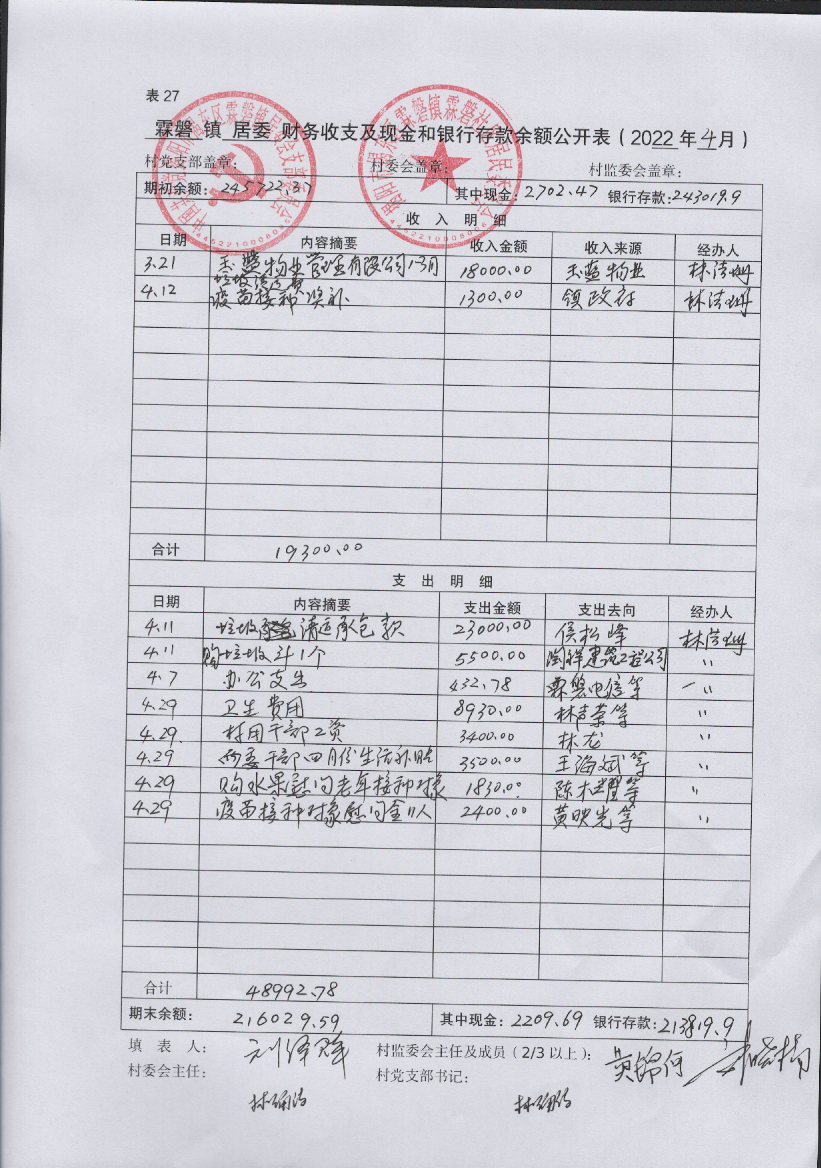 表27
霖磐 镇 居委 财务收支及现金和银行存款余额公开表(2022年4月)
村党支部盖章: 村委会盖章: 村监委会盖章:
期初余额:245722.37 其中现金:2702.47 银行存款:243019.9
收 入 明 细
日期 内容摘要 收入金额 收入来源 经办人
3.21 玉蓝物业管理有限公司1-3月 18000.00 玉蓝物业 林洁珊
垃圾清运费
4.12 疫苗接种奖补 1300.00 镇政府 林洁珊
合计 19300.00
支 出 明 细
日期 内容摘要 支出金额 支出去向 经办人
4.11 垃圾清运承包款 23000.00 侯松峰 林洁珊
4.11 购垃圾斗1个 5500.00 建筑工程公司 〃
4.7 办公支出 432.78 霖磐电信等 〃
4.29 卫生费用 8930.00 林声荣等 〃
4.29. 村用干部工资 3400.00 林龙 〃
4.29 两委干部四月份生活补贴 3500.00 王海斌等 〃
4.29 购水果慰问老年接种对象 1830.00 陈木耀等 〃
4.29 疫苗接种对象慰问金11人 2400.00 黄映光等 〃
合计 48992.78
期末余额: 216029.59 其中现金:2209.69 银行存款:213819.9
填 表 人: 村监委会主任及成员(2/3以上): 黄锦何
村委会主任: 村党支部书记: